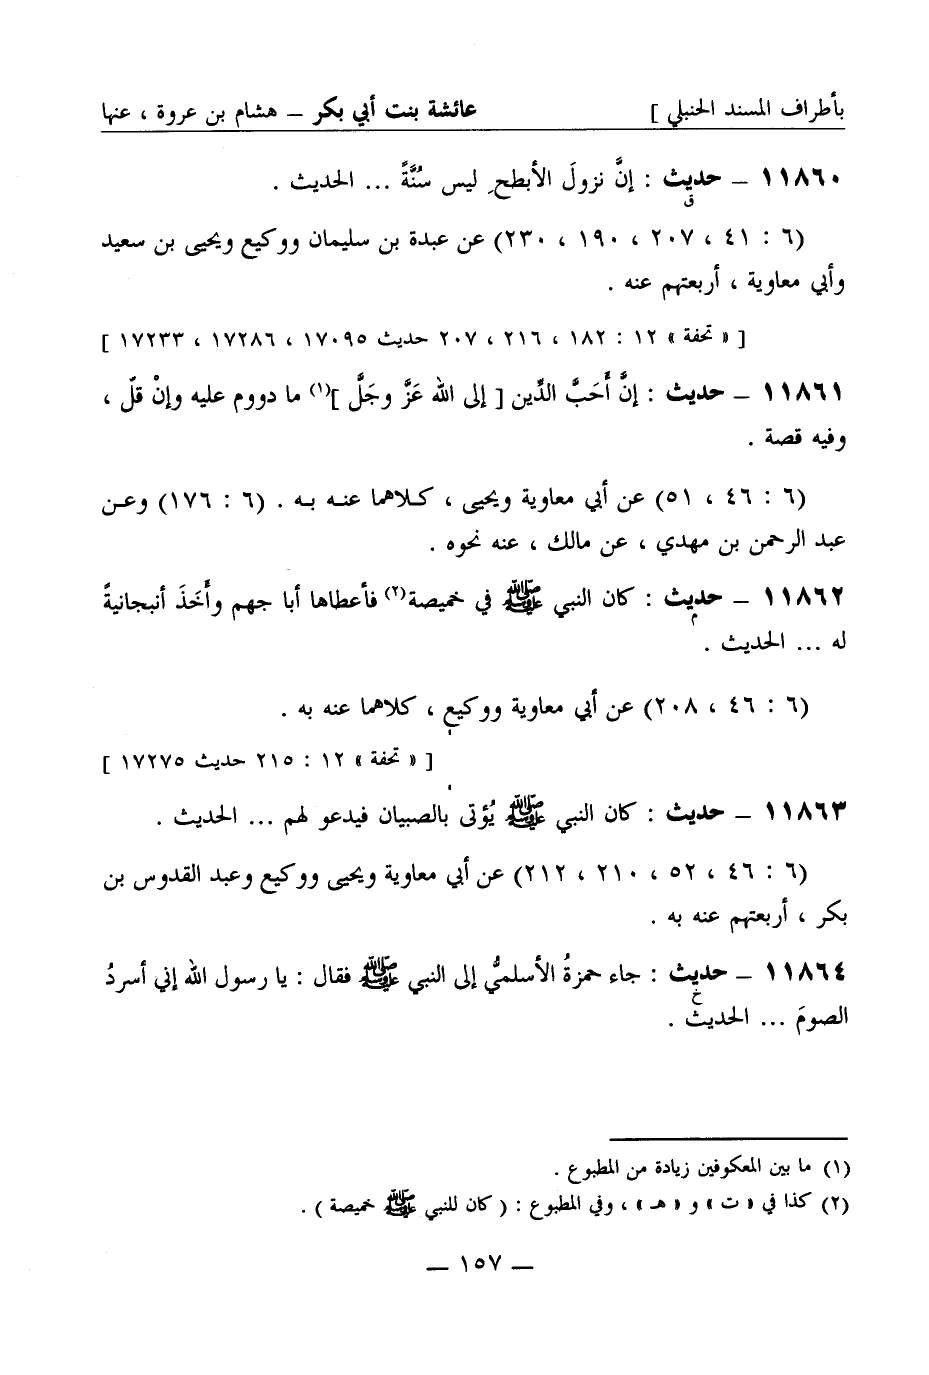 بأطراف المسند الحنبلي ] عائشة بنت أبي بكر – هشام بن عروة ، عنها
١١٨٦٠ – حديث : إنَّ نزولَ الأبطحِ ليس سُنَّةً ... الحديث .
ق
(٦ : ٤١ ، ٢٠٧ ، ١٩٠ ، ٢٣٠) عن عبدة بن سليمان ووكيع ويحيى بن سعيد
وأبي معاوية ، أربعتهم عنه .
[ « تحفة » ١٢ : ١٨٢ ، ٢١٦ ، ٢٠٧ حديث ١٧٠٩٥ ، ١٧٢٨٦ ، ١٧٢٣٣ ]
١١٨٦١ – حديث : إنَّ أَحَبَّ الدِّين [ إلى الله عَزَّ وجَلَّ ](١) ما دووم عليه وإنْ قلّ ،
وفيه قصة .
(٦ : ٤٦ ، ٥١) عن أبي معاوية ويحيى ، كلاهما عنه به . (٦ : ١٧٦) وعن
عبد الرحمن بن مهدي ، عن مالك ، عنه نحوه .
١١٨٦٢ – حديث : كان النبي ﷺ في خميصة(٢) فأعطاها أبا جهم وأَخَذَ أنبجانيةً
م
له ... الحديث .
(٦ : ٤٦ ، ٢٠٨) عن أبي معاوية ووكيع ، كلاهما عنه به .
[ « تحفة » ١٢ : ٢١٥ حديث ١٧٢٧٥ ]
١١٨٦٣ – حديث : كان النبي ﷺ يُؤتى بالصبيان فيدعو لهم ... الحديث .
(٦ : ٤٦ ، ٥٢ ، ٢١٠ ، ٢١٢) عن أبي معاوية ويحيى ووكيع وعبد القدوس بن
بكر ، أربعتهم عنه به .
١١٨٦٤ – حديث : جاء حمزةُ الأسلميُّ إلى النبي ﷺ فقال : يا رسول الله إني أسردُ
خ
الصومَ ... الحديث .
(١) ما بين المعكوفين زيادة من المطبوع .
(٢) كذا في « ت » و « هـ » ، وفي المطبوع : ( كان للنبي ﷺ خميصة ) .
– ١٥٧ –